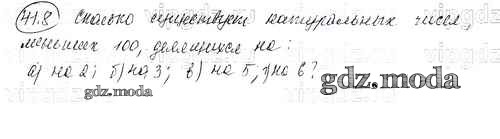 41.8 Сколько существует натуральных чисел,
меньших 100, делящихся на:
а) на 2; б) на 3; в) на 5, г) на 6?
gdz.moda
gdz.moda